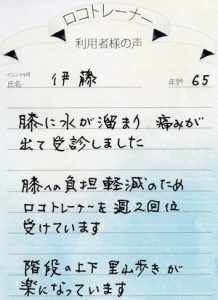 ロコトレーナー
利用者様の声
イニシャル可
氏名 伊藤 年齢 65
膝に水が溜まり 痛みが
出て受診しました
膝への負担軽減のため
ロコトレーナーを週2回位
受けています
階段の上下 里山歩きが
楽になっています